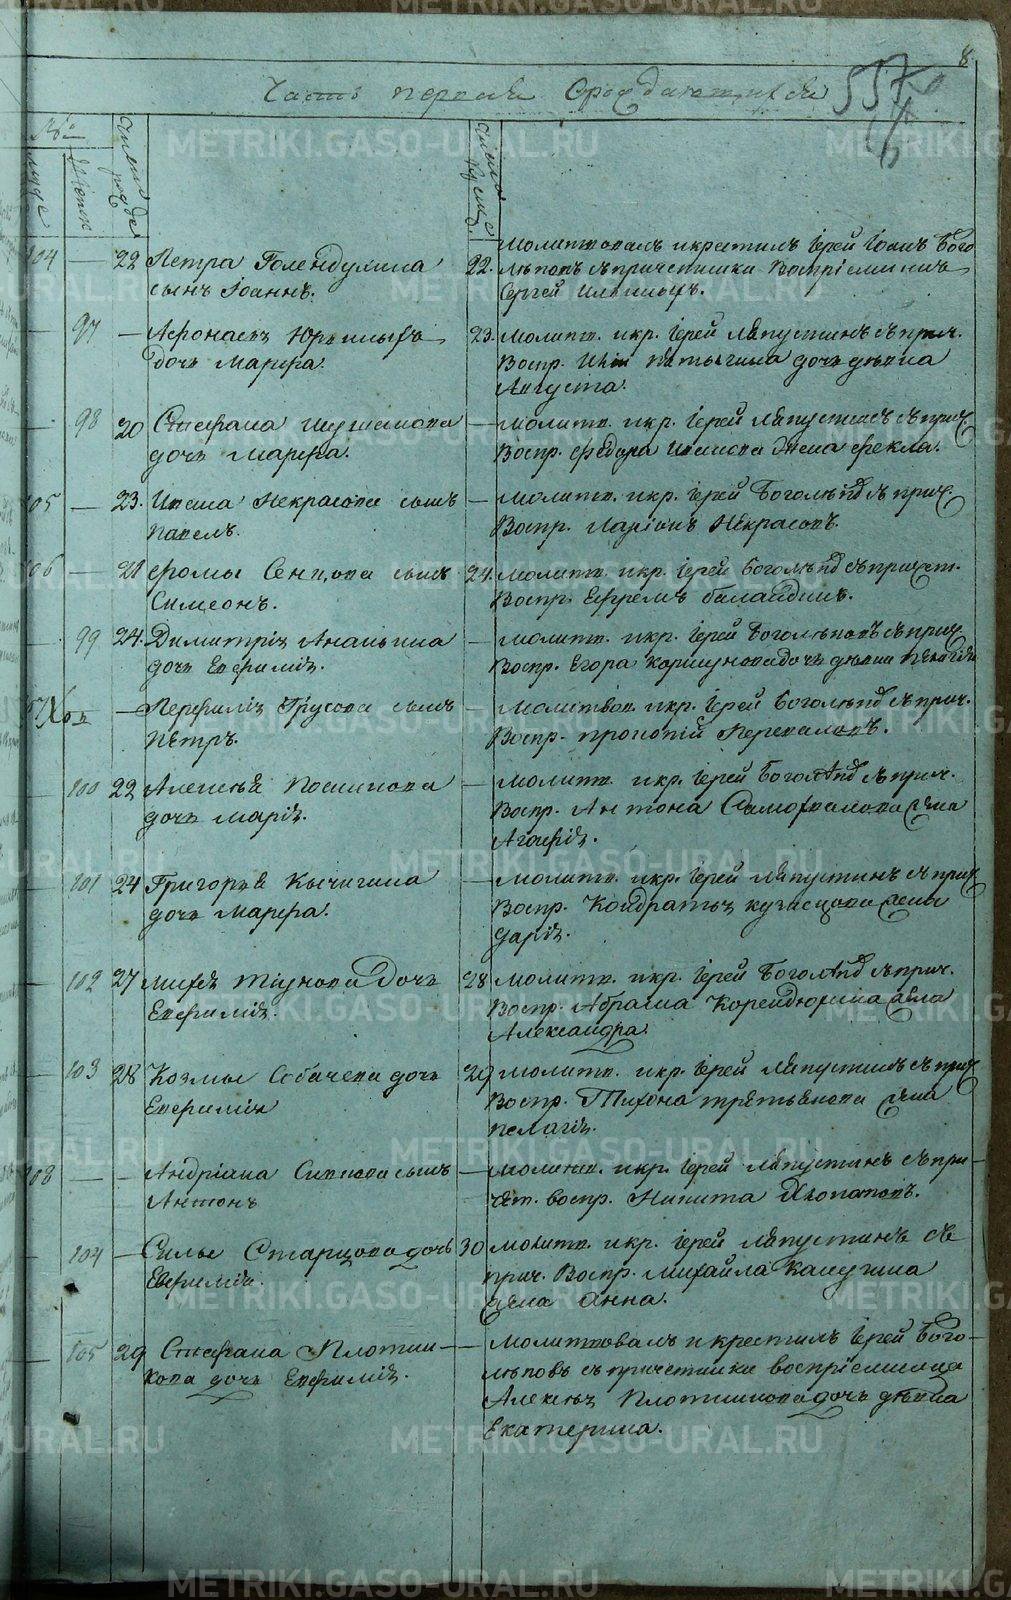 8
Часть первая О раждающихся
557
№
муже
женск
Число рожде
Число креще
молитвовалъ и крестилъ Іерей Іоанъ Бого
104 — 22 Петра Голендухина 22. лѣповъ съ причетники Воспріемникъ
сынъ Іоаннъ. Сергей Ильиныхъ.
97 — Афонасья Юрьиныхъ 23. Молитв. и кр. Іерей Ляпустинъ съ прич.
дочь Марфа. Воспр. дочь дѣвица
Августа.
98 20 Стефана Шушакова — Молитв. и кр. Іерей Ляпустинъ съ прич.
дочь Марфа. Воспр. Федора жена Фекла.
105 — 23. Ивана Некрасова сынъ — Молитв. и кр. Іерей Боголѣпов съ прич.
Павелъ. Воспр. Ларіонъ Некрасовъ.
106 — 21 Фомы Сенцова сынъ 24. Молитв. и кр. Іерей Боголѣпов съ причет.
Симеонъ. Воспр. Ефремъ Баландинъ.
99 24. Димитрія Ананьина — Молитв. и кр. Іерей Боголѣповъ съ прич.
дочь Евфимія. Воспр. Егора Коршунова дочь дѣвица Пелагія
— Перфилія Трусова сынъ — Молитвов. и кр. Іерей Боголѣпов съ прич.
Петръ. Воспр. Прокопій Переваловъ.
100 22 Алексѣя Постникова — Молитв. и кр. Іерей Боголѣпов съ прич.
дочь Марія. Воспр. Антона жена
Агафія.
101 24 Григорья Кычигина — Молитв. и кр. Іерей Ляпустинъ съ прич
дочь Марфа. Воспр. Кондратья Кузнецова жена
Дарія.
102 27 дочь 28 Молитв. и кр. Іерей Боголѣпов съ прич.
Евфимія. Воспр. Абрама Корендюхина жена
Александра.
103 28 Козмы Собачева дочь 29 Молитв. и кр. Іерей Ляпустинъ съ прич
Евфимія Воспр. Тихона Третьякова жена
Пелагія.
108 — — Андріана сынъ — Молитв. и кр. Іерей Ляпустинъ съ при-
Антонъ чет. воспр. Никита Хлопотовъ.
104 — Силы Старцова дочь 30 Молитв. и кр. Іерей Ляпустинъ съ
Евфимія. прич. Воспр. Михайла Калугина
жена Анна.
105 29 Стефана Плотни- — Молитвовалъ и крестилъ Іерей Бого-
кова дочь Евфимія. лѣповъ съ причетники воспріемница
Алексѣя Плотникова дочь дѣвица
Екатерина.
METRIKI.GASO-URAL.RU